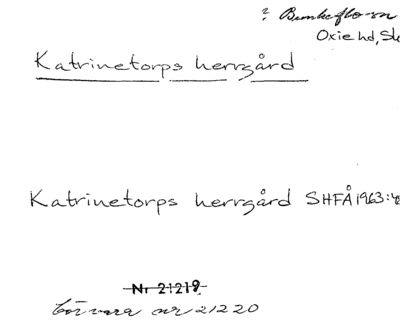 ? Bunkeflo sn
Oxie hd, Sk
Katrinetorps herrgård
Katrinetorps herrgård SHFÅ 1963:48
Nr 21219
bör vara nr 21220